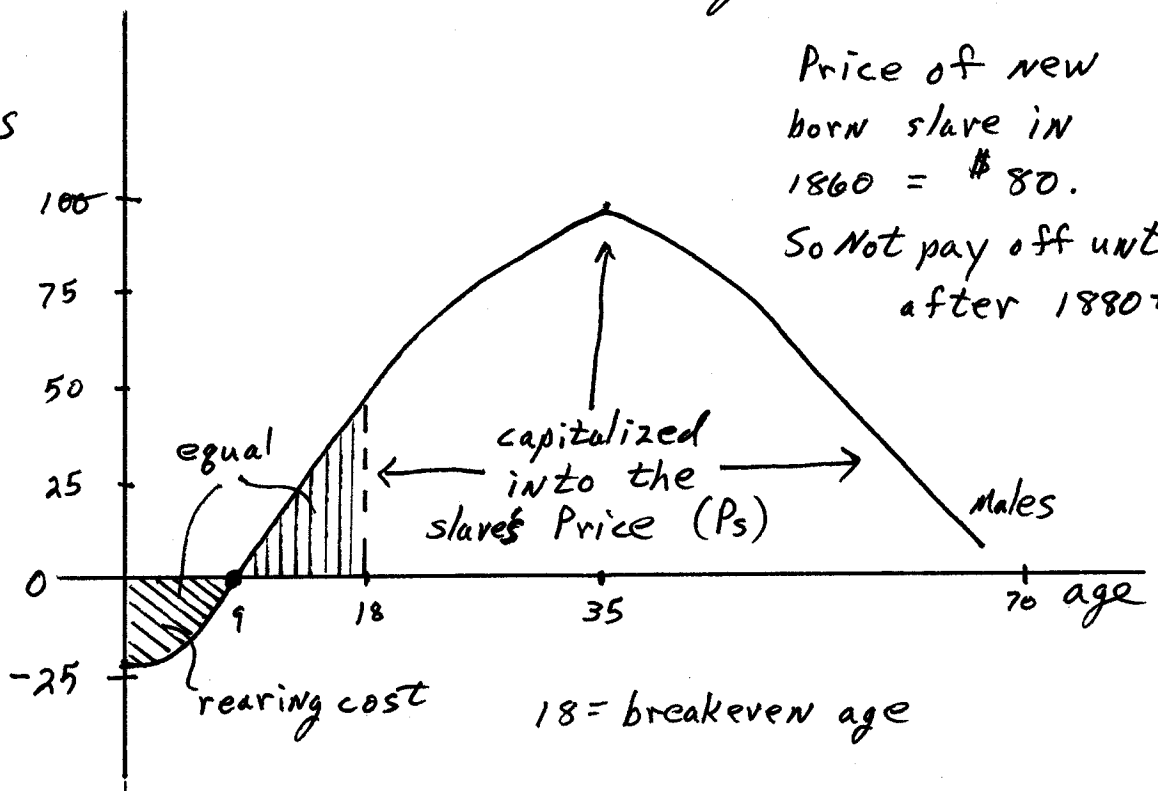 s
Price of new
born slave in
1860 = $80.
So Not pay off unt
after 1880
100
75
50
25
0
-25
equal
capitalized
into the
slave's Price (Ps)
Males
9
18
35
70
age
rearing cost
18 = breakeven age